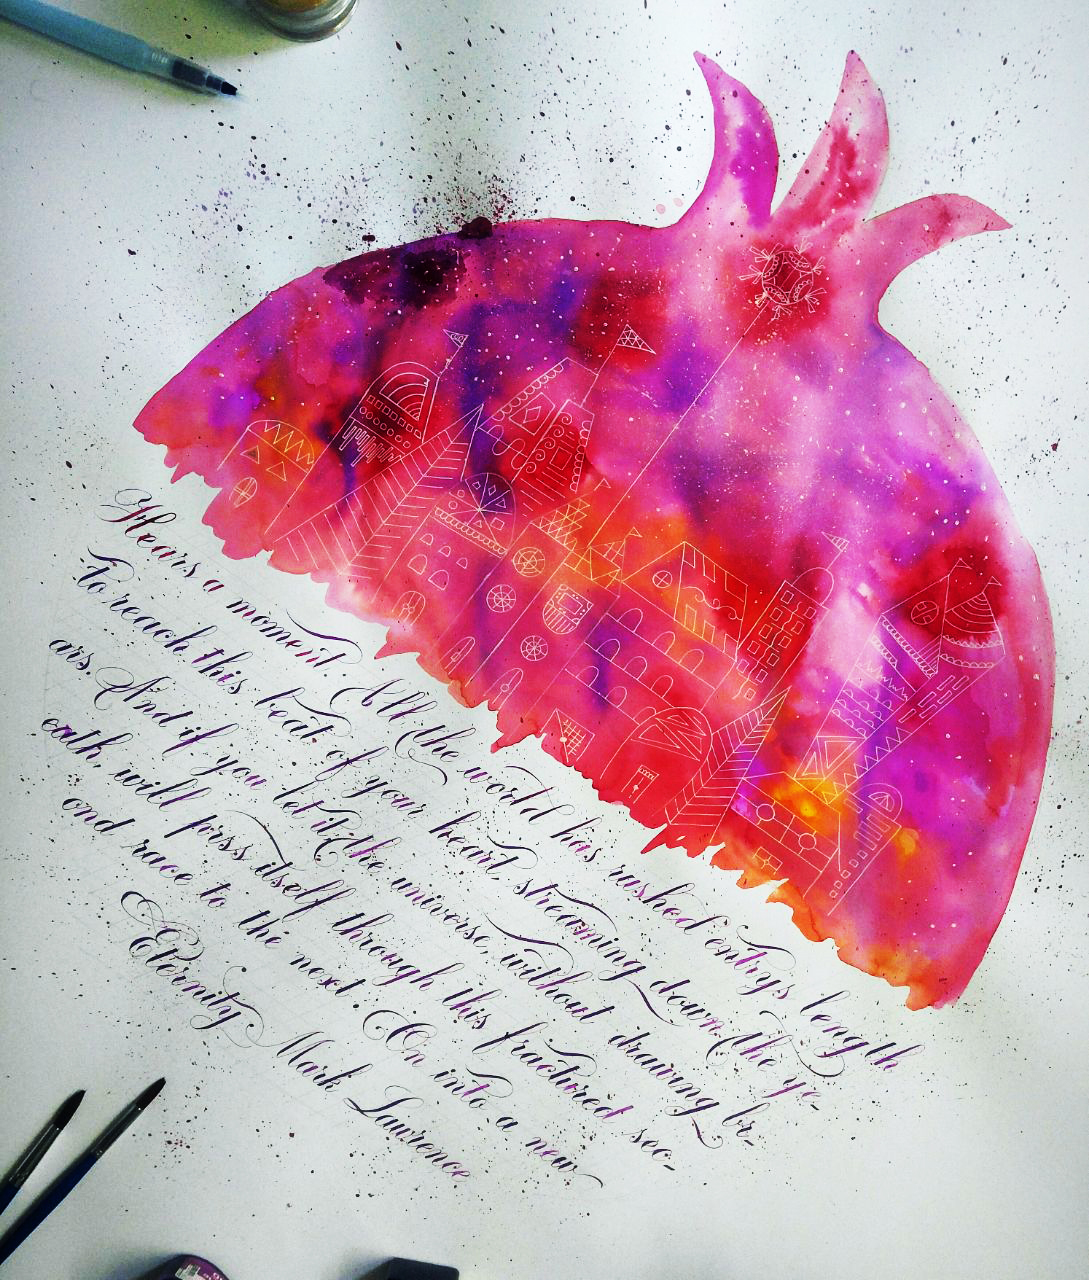 Hears a moment. All the world has rushed entrys length
To reach this beat of your heart, streaming down the ye-
ars. And if you let it, the universe, without drawing br-
eath, will press itself through this fractured sec-
ond and race to the next. On into a new
Eternity Mark Lawrence